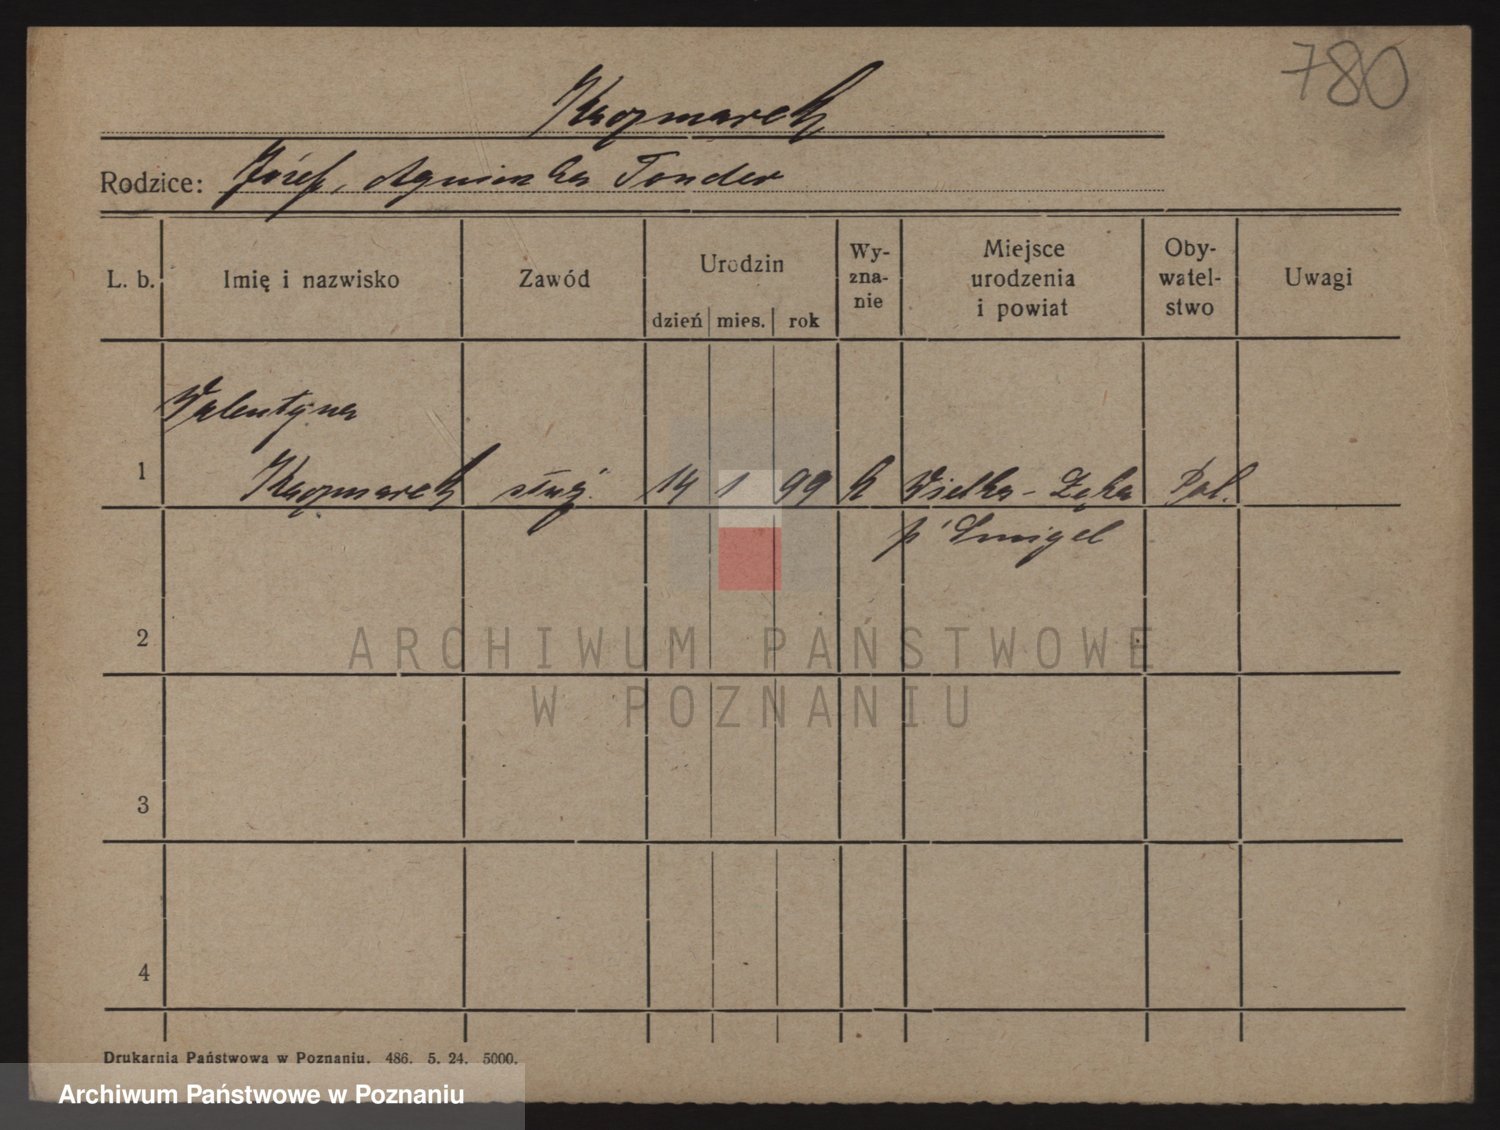 780
Kaczmarek
Rodzice: Józef, Agnieszka Tonder
L. b. Imię i nazwisko Zawód Urodzin dzień mies. rok Wy-zna-nie Miejsce urodzenia i powiat Oby-watel-stwo Uwagi
Walentyna
1 Kaczmarek służ. 14 1 99 k Wielka-Łęka Pol.
p. Śmigel
2
ARCHIWUM PAŃSTWOWE
W POZNANIU
3
4
Drukarnia Państwowa w Poznaniu. 486. 5. 24. 5000.
Archiwum Państwowe w Poznaniu